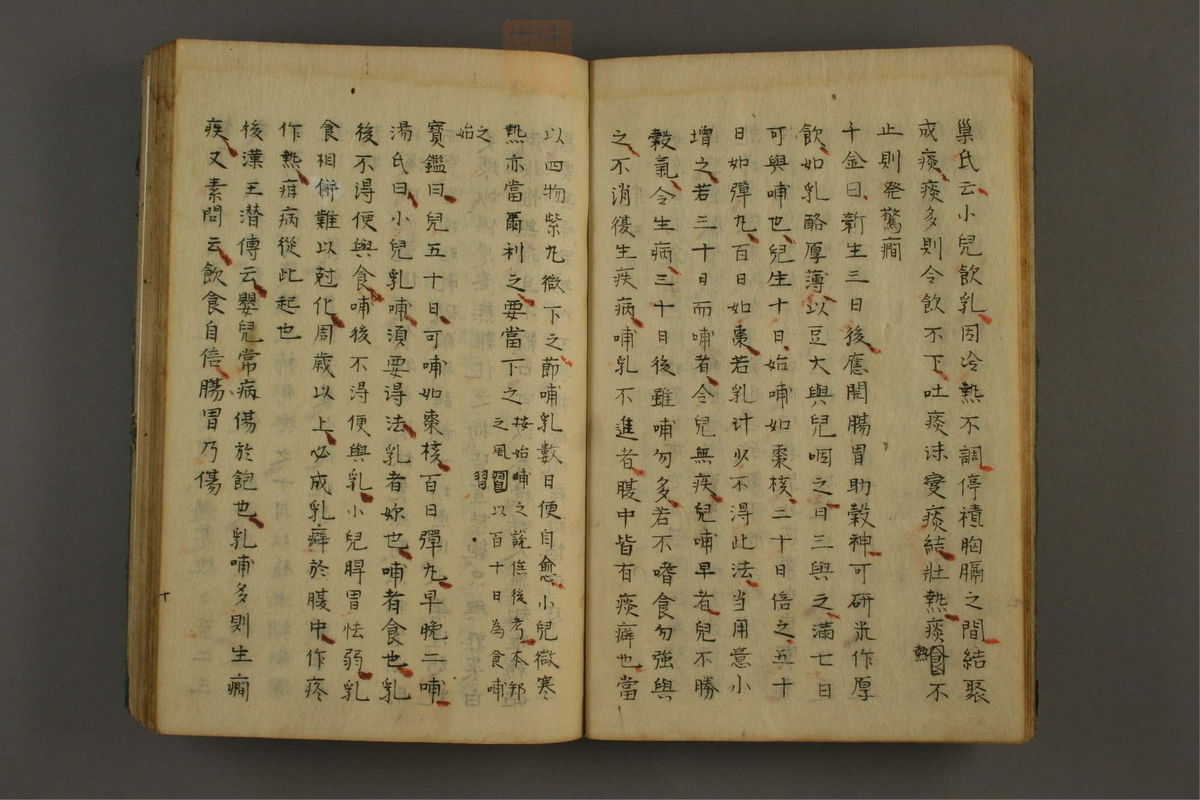 巢氏云小兒飲乳因冷熱不調停積胸膈之間結聚
成痰痰多則令飲不下吐痰沫變痰結壯熱痰熱不
止則発驚癇
千金曰新生三日後應開腸胃助穀神可研米作厚
飲如乳酪厚薄以豆大與兒咽之日三與之滿七日
可與哺也兒生十日始哺如棗核二十日倍之五十
日如彈丸百日如棗若乳汁少不得此法当用意小
增之若三十日而哺者令兒無疾兒哺早者兒不勝
穀氣令生病三十日後雖哺勿多若不嗜食勿強與
之不消復生疾病哺乳不進者腹中皆有痰癖也當
以四物紫丸微下之節哺乳數日便自愈小兒微寒
熱亦當爾利之要當下之按始哺之説隹後考本邦
之風習以百十日為食哺
之始
寶鑑曰兒五十日可哺如棗核百日彈丸早晚二哺
湯氏曰小兒乳哺須要得法乳者妳也哺者食也乳
後不得便與食哺後不得便與乳小兒脾胃怯弱乳
食相併難以尅化周歲以上必成乳癖於腹中作疼
作熱疳病從此起也
後漢王潜傳云嬰兒常病傷於飽也乳哺多則生癇
疾又素問云飲食自倍腸胃乃傷
十